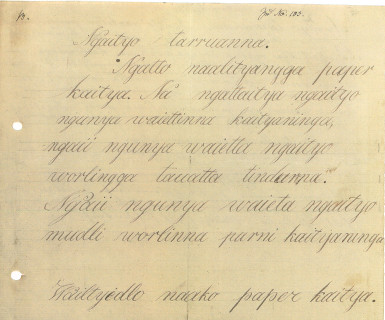 Ngaityo tarruanna.
Ngatto naalityangga paper
kaitya. Na ngattaitya ngaityo
ngunya waiettinna kaityaninga,
ngaii ngunya waietta ngaityo
worlingga tauatta tindurna.
Ngaii ngunya waieta ngaityo
mudli worlinna purni kaityaninga
Wailtyidlo naako paper kaitya.